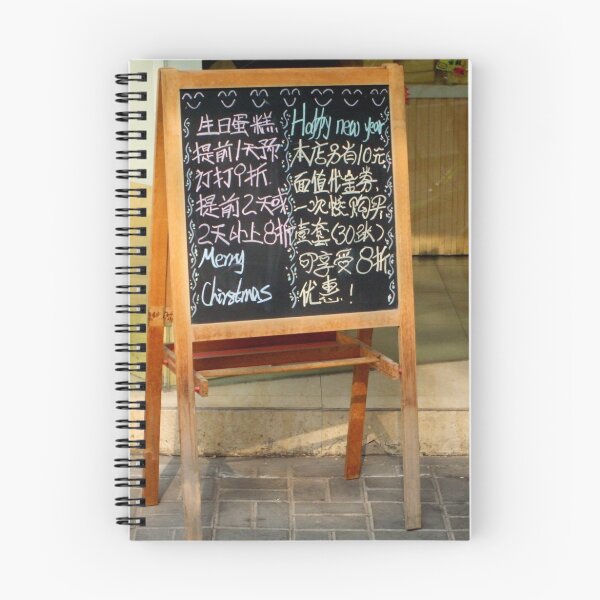 生日蛋糕
提前1天预
订打9折
提前2天或
2天以上8折
Merry
Chirstmas
Happy new year
本店另有10元
面值代金券.
一次性购买
壹套(30张)
可享受8折
优惠!